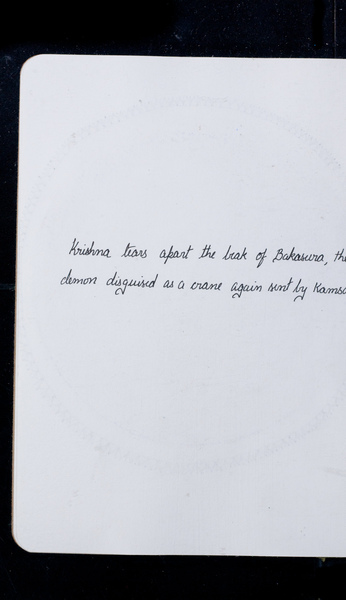 Krishna tears apart the beak of Bakasura, the
demon disguised as a crane again sent by Kamsa